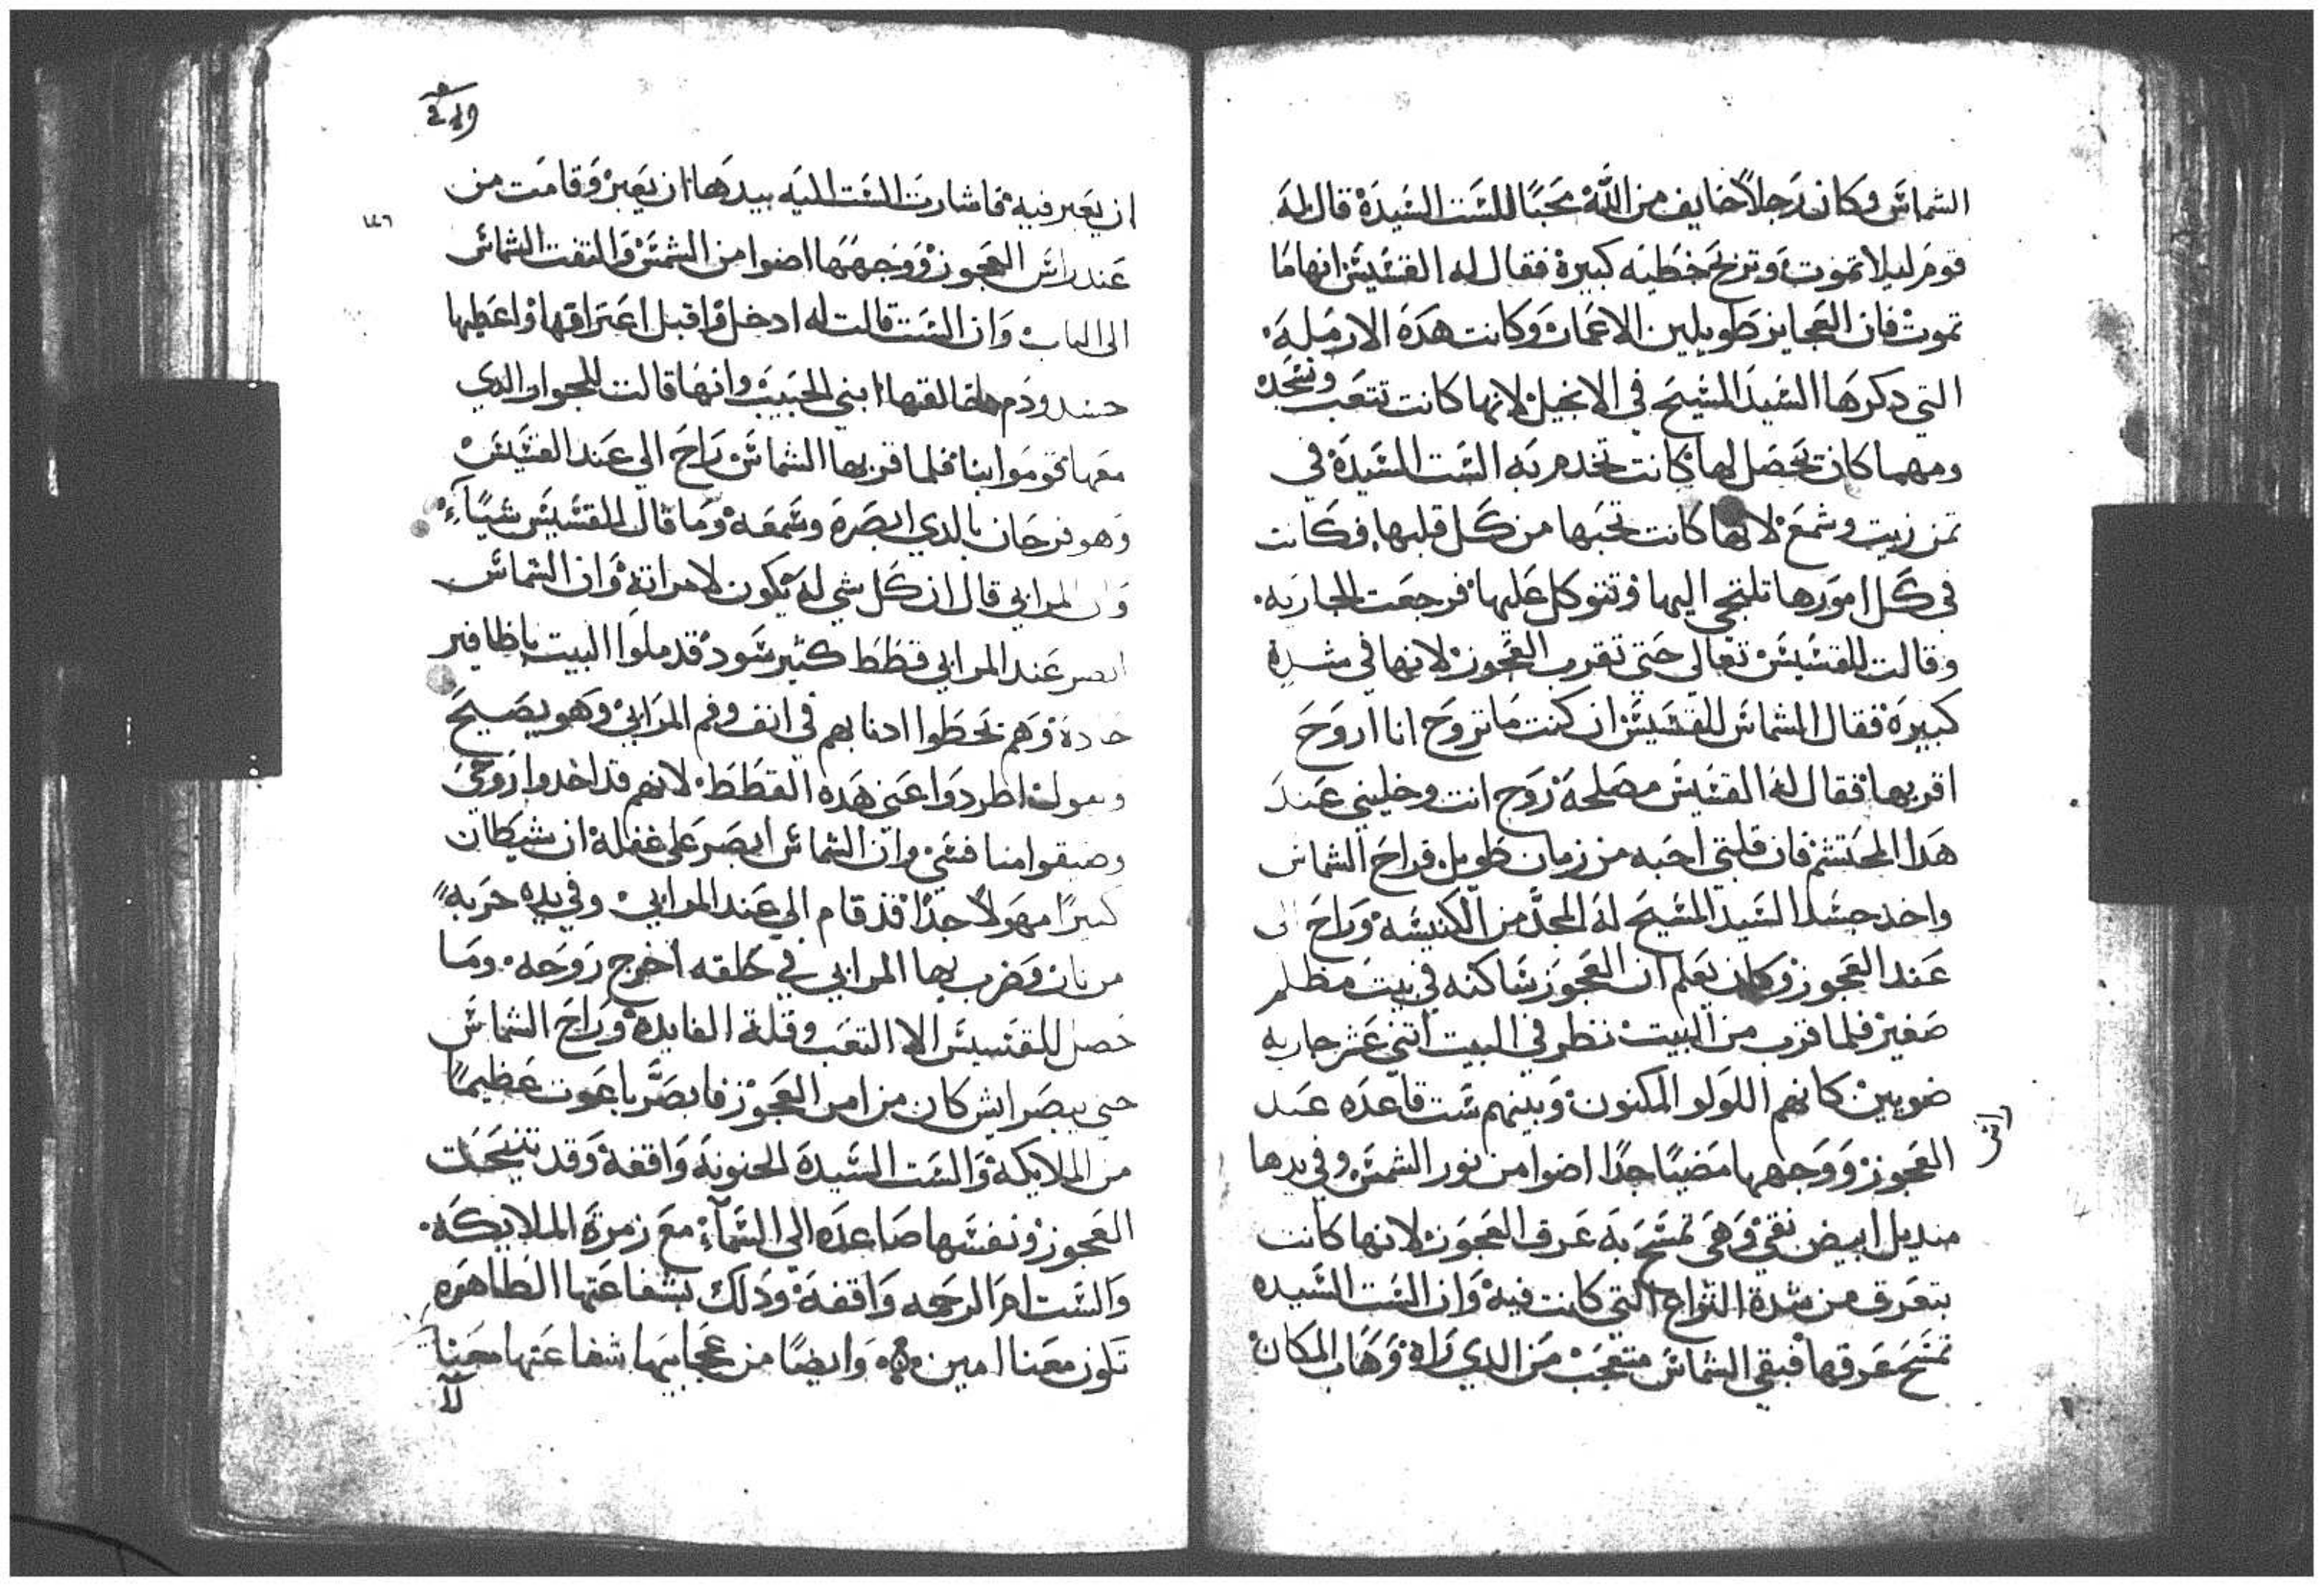 الشماس وكان رجلاً خايف من الله محبًا للست السيدة قال له
قوم ليلا تموت وتربح خطيه كبيرة فقال له القسيس انها ما
تموت فان العجايز طويلين الاعمار وكانت هده الارمله
التي دكرها السيد المسيح في الانجيل لانها كانت تتعب وتسجد
ومهما كان تحصل لها كانت تخدم به الست السيدة في
تمن زيت وشمع لانها كانت تحبها من كل قلبها فكانت
في كل امورها تلتجي اليها وتتوكل عليها فرجعت الجاريه
وقالت للقسيس تعالي حتي تقرب العجوز لانها في شدة
كبيرة فقال الشماس للقسيس ان كنت ما تروح انا اروح
اقربها فقال له القسيس مصلحة روح انت وخليني عند
هدا المحتشم فان قلبي احبه من زمان طويل فراح الشماس
واخد جسد السيد المسيح له المجد من الكنيسه وراح الى
عند العجوز وكان يعلم ان العجوز ساكنه في بيت مظلم
صغير فلما قرب من البيت نظر في البيت اتني عشر جاريه
ضويين كانهم اللولو المكنون وبينهم ست قاعده عند
راس
العجوز ووجهها مضيًا جدًا اضوا من نور الشمس وفي يدها
منديل ابيض نقي وهي تمسح به عرق العجوز لانها كانت
بتعرق من شدة النزاع التي كانت فيه وان الست السيده
تمسح عرقها فبقي الشماس متعجب من الدي راه وهاب المكان
ان يعبر فيه فاشارت الست اليه بيدها ان يعبر وقامت من
عند راس العجوز ووجهها اضوا من الشمس والتفت الشماس
الى الباب وان الست قالت له ادخل واقبل اعترافها واعطيها
جسد ودم خالقها ابني الحبيب وانها قالت للجوار الدي
معها قوموا بنا فلما قربها الشماس راح الي عند القسيس
وهو فرحان بالدي ابصره وسمعه وما قال للقسيس شيًا
وان المرابي قال ان كل شي له يكون لامراته وان الشماس
ابصر عند المرابي قطط كتير سود قد ملوا البيت باظافير
حاده وهم يحطوا ادنابهم في انف وفم المرابي وهو يصيح
ويقول اطردوا عني هده القطط لانهم قد اخدوا روحي
وضيقوا منافسي وان الشماس ابصر على غفلة ان شيطان
كبيرًا مهولاً جدًا قد قام الي عند المرابي وفي يده حربه
من نار وضرب بها المرابي في حلقه اخرج روحه وما
حصل للقسيس الا التعب وقلة الفايده وراح الشماس
حتي يبصر ايش كان من امر العجوز فابصر باعوت عظيمًا
من الملايكة والست السيدة الحنونة واقفة وقد تنيحت
العجوز ونفسها صاعده الي السماء مع زمرة الملايكه
والست ام الرحمه واقفة ودلك بشفاعتها الطاهره
تكون معنا امين وايضًا من عجايبها شفاعتها معنا